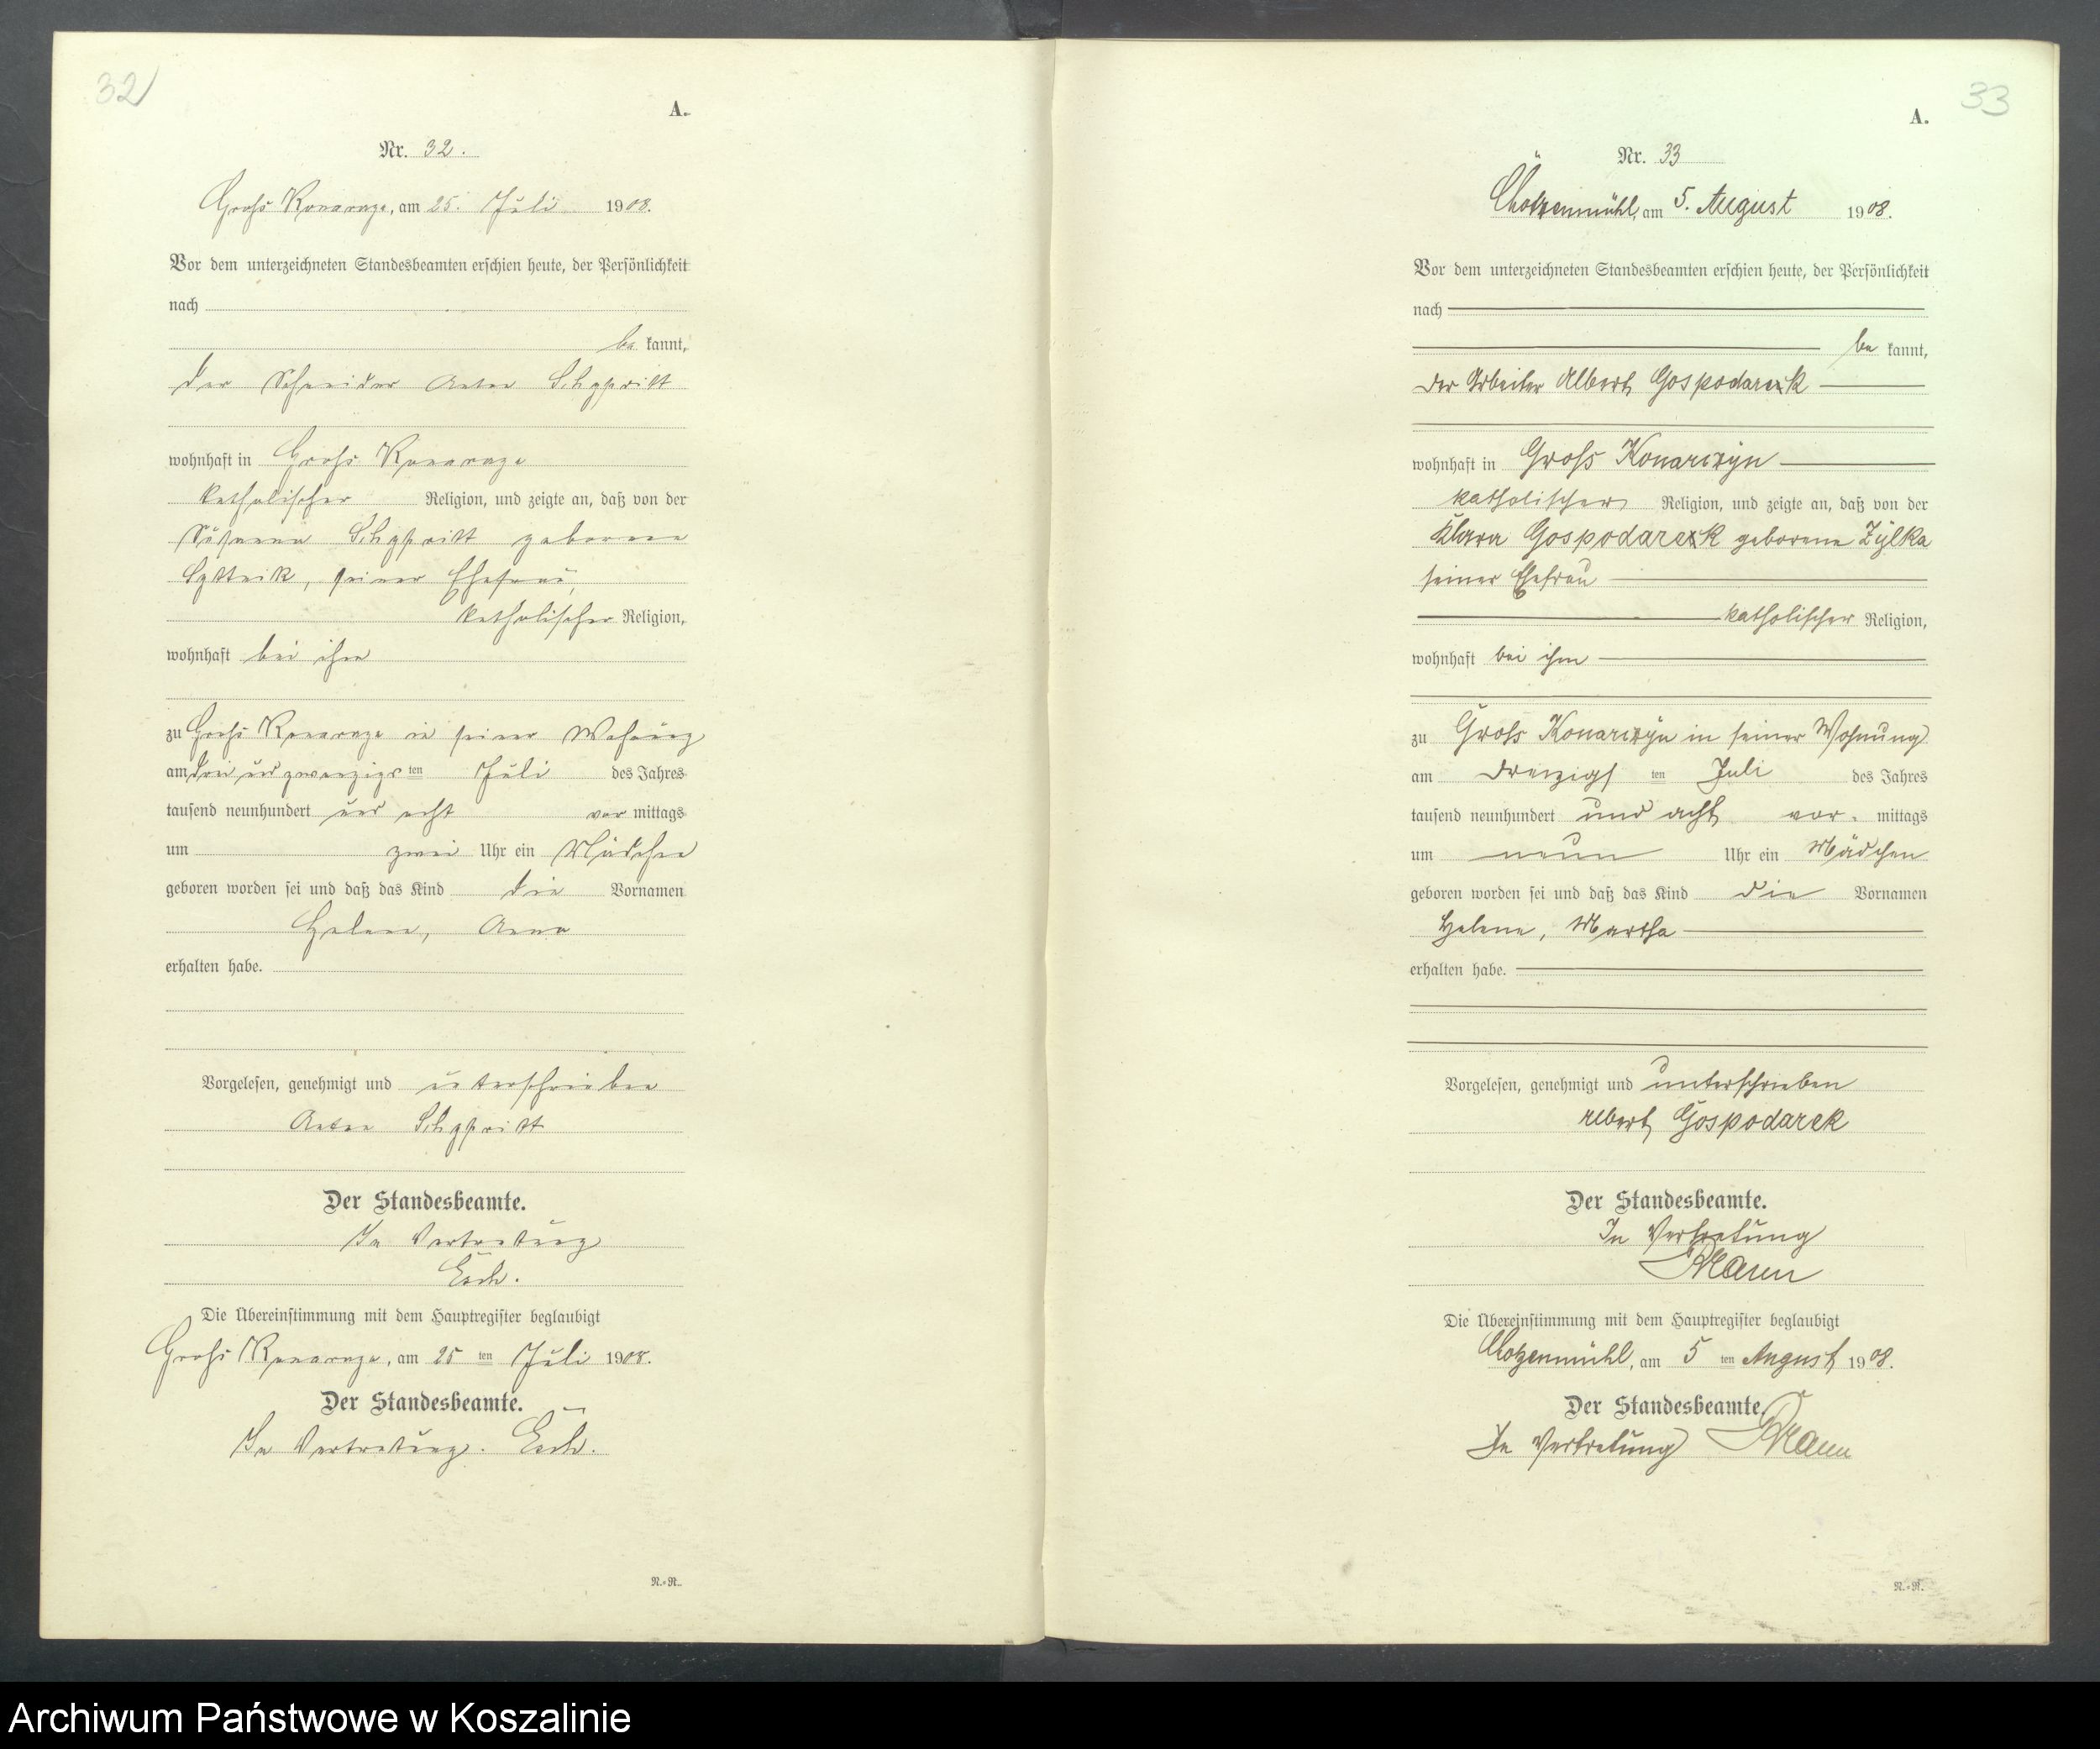 32
A.
Nr. 32.
am 25. Juli 1908.
Vor dem unterzeichneten Standesbeamten erschien heute, der Persönlichkeit
nach
be kannt,
der Schneider Anton
wohnhaft in Gross
katholischer Religion, und zeigte an, daß von der
geborene
seiner Ehefrau,
katholischer Religion,
wohnhaft bei ihm
zu Gross in seiner Wohnung
am drei und zwanzigsten Juli des Jahres
tausend neunhundert und acht vor mittags
um zwei Uhr ein Mädchen
geboren worden sei und daß das Kind die Vornamen
Helene, Anna
erhalten habe.
Vorgelesen, genehmigt und unterschrieben
Anton
Der Standesbeamte.
In Vertretung
Die Übereinstimmung mit dem Hauptregister beglaubigt
Gross am 25 ten Juli 1908.
Der Standesbeamte.
In Vertretung.
N.=R.
33
A.
Nr. 33
Chotzenmühl, am 5. August 1908.
Vor dem unterzeichneten Standesbeamten erschien heute, der Persönlichkeit
nach
be kannt,
der Arbeiter Albert Gospodarek
wohnhaft in Gross Konarczyn
katholischer Religion, und zeigte an, daß von der
Klara Gospodarek geborene Zylka
seiner Ehefrau
katholischer Religion,
wohnhaft bei ihm
zu Gross Konarczyn in seiner Wohnung
am dreizigs ten Juli des Jahres
tausend neunhundert und acht vor mittags
um neun Uhr ein Mädchen
geboren worden sei und daß das Kind die Vornamen
Helene, Martha
erhalten habe.
Vorgelesen, genehmigt und unterschrieben
Albert Gospodarek
Der Standesbeamte.
In Vertretung
Die Übereinstimmung mit dem Hauptregister beglaubigt
Chotzenmühl, am 5 ten August 1908.
Der Standesbeamte.
In Vertretung
N.=R.
Archiwum Państwowe w Koszalinie